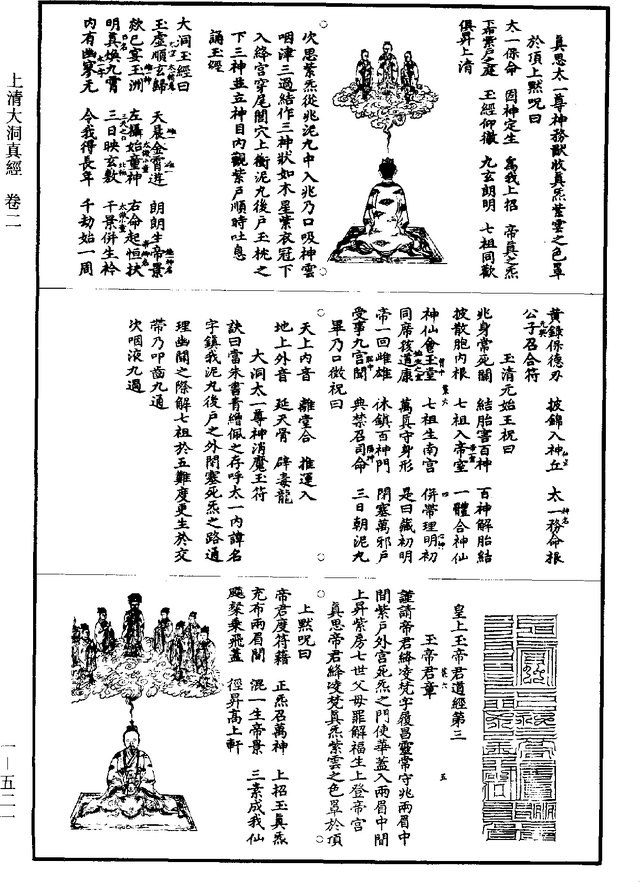 上清大洞真經 卷二
一—五二一
真思太一尊神務猷收真炁紫雲之色罩
於頂上默呪曰
太一保命 固神定生 為我上招 帝真之炁
下布紫戶之庭 玉經仰徹 九玄朗明 七祖同歡
俱昇上清
次思紫炁從兆泥丸中入兆乃口吸神雲
咽津三過結作三神狀如木星紫衣冠下
入絳宮穿尾閭穴上衝泥丸後戶玉枕之
下三神並立神目內觀紫戶順時吐息
誦玉經
大洞玉經曰
玉虛順玄歸 天晨金霄遊 朗朗生帝景
歘已宴玉洲 左攝始童神 右命起恒扶
明真煥九霄 三日映玄敷 千景併生衿
內有幽寥无 令我得長年 千劫始一周
黃錄保德刃 披錦入神丘 太一務命根
公子召合符
玉清元始王祝曰
兆身常死關 結胎害百神 百神解胎結
披散胞內根 七祖入帝室 一體合神仙
神仙會玉堂 七祖生南宮 併帶理明初
同席孩道康 萬真守身形 是日藏初明
帝一回雌雄 休鎮百神門 閉塞萬邪戶
受事九宮間 典禁召司命 三日朝泥丸
畢乃口微祝曰
天上內音 離堂合 推運入
地上外音 延天骨 辟毒龍
大洞太一尊神消魔玉符
訣曰當朱書青繒佩之存呼太一內諱名
字鎮我泥丸後戶之外閉塞死炁之路通
理幽關之際解七祖於五難度更生於交
帶乃叩齒九通
次咽液九過
皇上玉帝君道經第三
玉帝君章
謹請帝君絳凌梵字履昌靈常守兆兩眉中
間紫戶外宮死炁之門使華蓋入兩眉中間
上昇紫房七世父母罪解福生上登帝宮
真思帝君絳凌梵真炁紫雲之色罩於頂
上默呪曰
帝君度符籍 正炁召萬神 上招玉真炁
充布兩眉間 混一生帝景 三素成我仙
飇粲乘飛蓋 徑昇高上軒